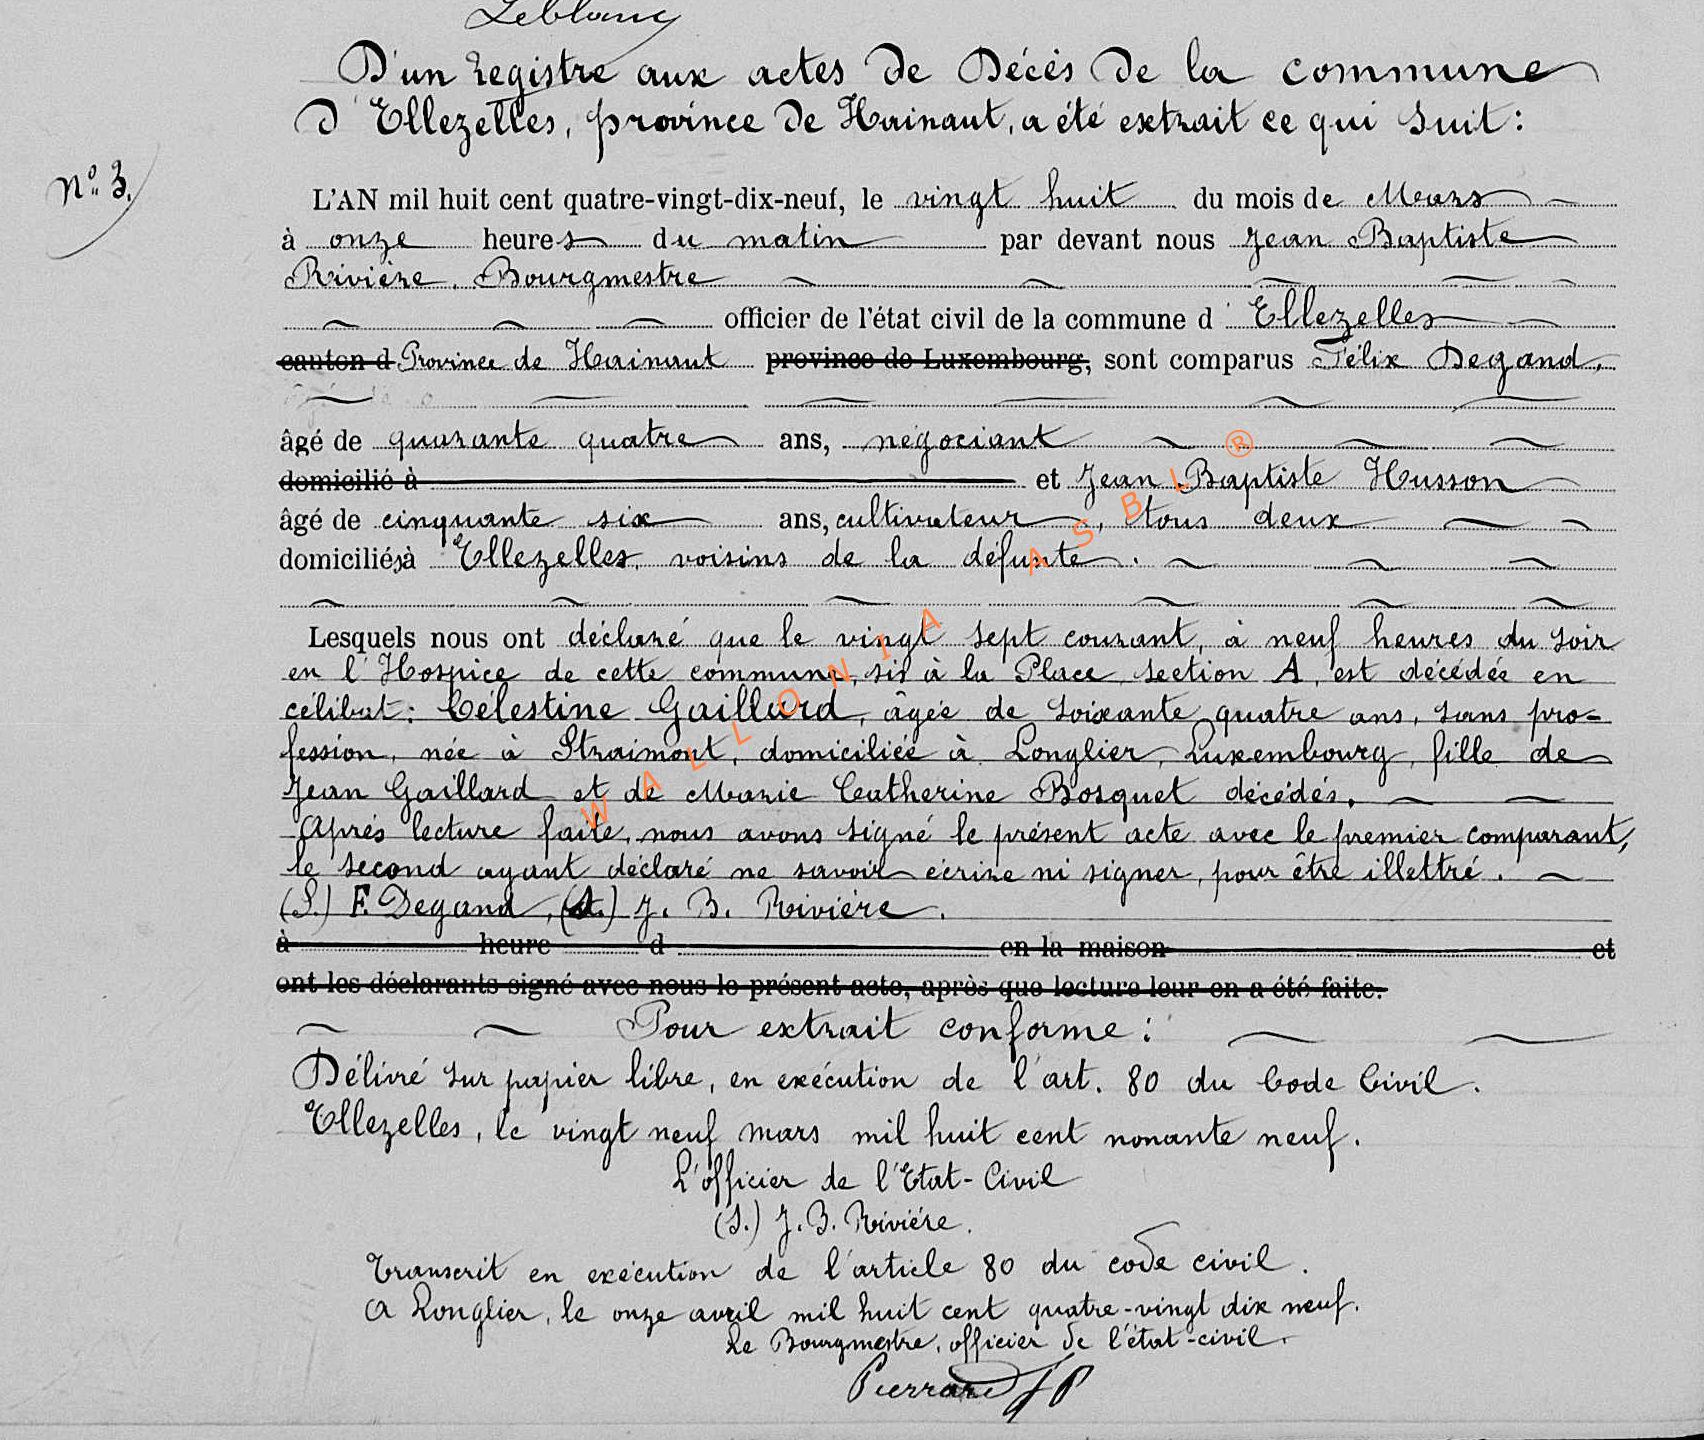 Leblanc
D'un registre aux actes de Décès de la commune
d'Ellezelles, province de Hainaut, a été extrait ce qui suit :
N° 3.
L'AN mil huit cent quatre-vingt-dix-neuf, le vingt huit du mois de Mars
à onze heures du matin par devant nous Jean Baptiste
Rivière, Bourgmestre
officier de l'état civil de la commune d'Ellezelles
canton d Province de Hainaut province de Luxembourg, sont comparus Félix Degand,
âgé de quarante quatre ans, négociant
domicilié à et Jean Baptiste Husson
âgé de cinquante six ans, cultivateur, tous deux
domiciliés à Ellezelles, voisins de la défunte.
Lesquels nous ont déclaré que le vingt sept courant, à neuf heures du soir
en l'Hospice de cette commune, sis à la Place, section A, est décédée en
célibat : Célestine Gaillard, âgée de soixante quatre ans, sans pro-
fession, née à Straimont, domiciliée à Longlier, Luxembourg, fille de
Jean Gaillard et de Marie Catherine Bosquet décédés.
Après lecture faite, nous avons signé le présent acte avec le premier comparant,
le second ayant déclaré ne savoir écrire ni signer, pour être illettré.
(S.) F. Degand, (S.) J. B. Rivière.
à heure d en la maison et
ont les déclarants signé avec nous le présent acte, après que lecture leur en a été faite.
Pour extrait conforme :
Délivré sur papier libre, en exécution de l'art. 80 du Code Civil.
Ellezelles, le vingt neuf mars mil huit cent nonante neuf.
L'officier de l'Etat-Civil
(S.) J. B. Rivière.
Transcrit en exécution de l'article 80 du code civil.
A Longlier, le onze avril mil huit cent quatre-vingt dix neuf.
Le Bourgmestre, officier de l'état-civil.
Pierrard JP
WALLONIA ASBL ®